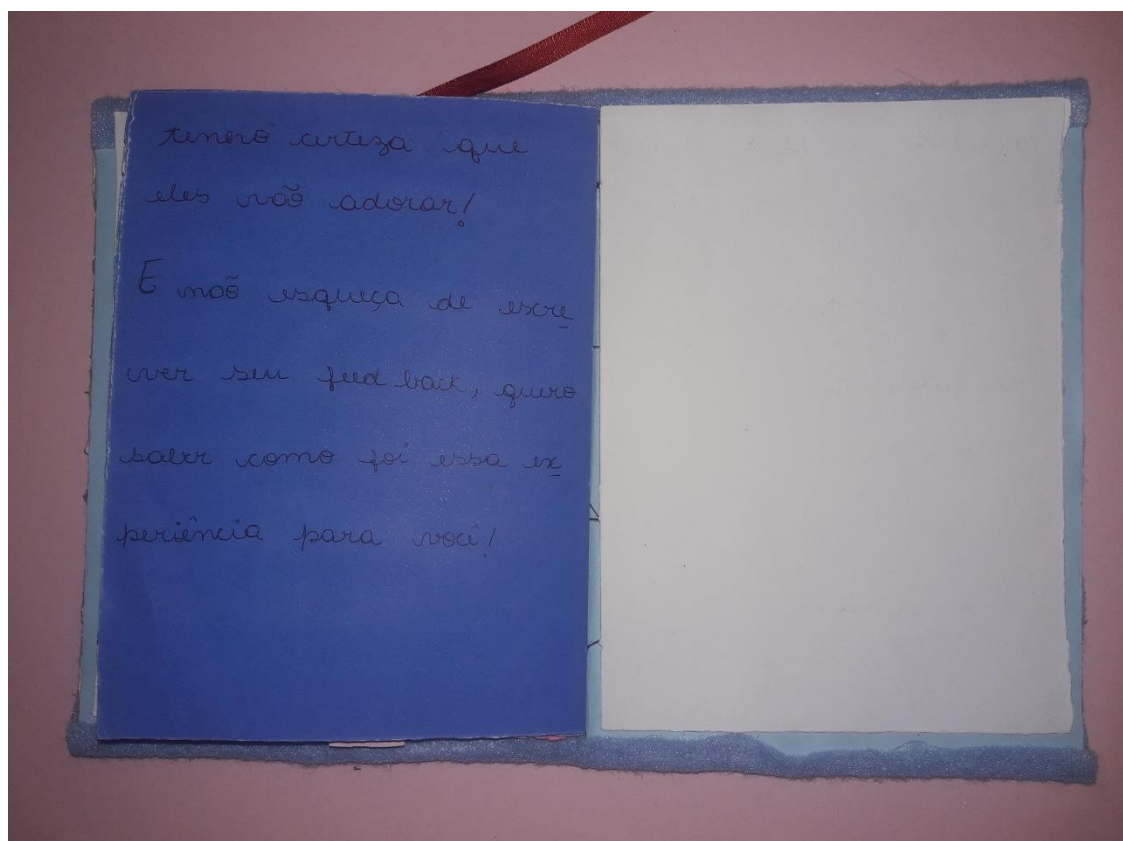 tenho certeza que
eles vão adorar!
E não esqueça de escre
ver seu feed back, quero
saber como foi essa ex
periência para você!